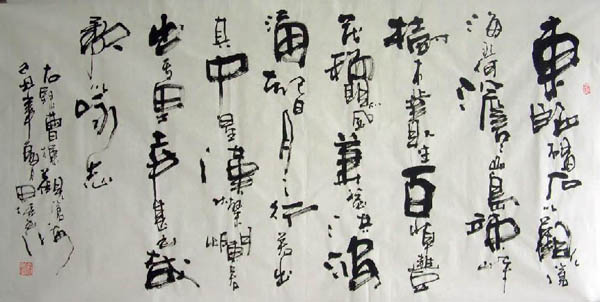 東臨碣石以觀滄
海水何澹澹山島竦峙
樹木叢生百草豐
茂秋風蕭瑟洪波
涌起日月之行若出
其中星漢燦爛若
出其里幸甚至哉
歌以詠志
右錄曹操觀滄海
己丑年夏月田